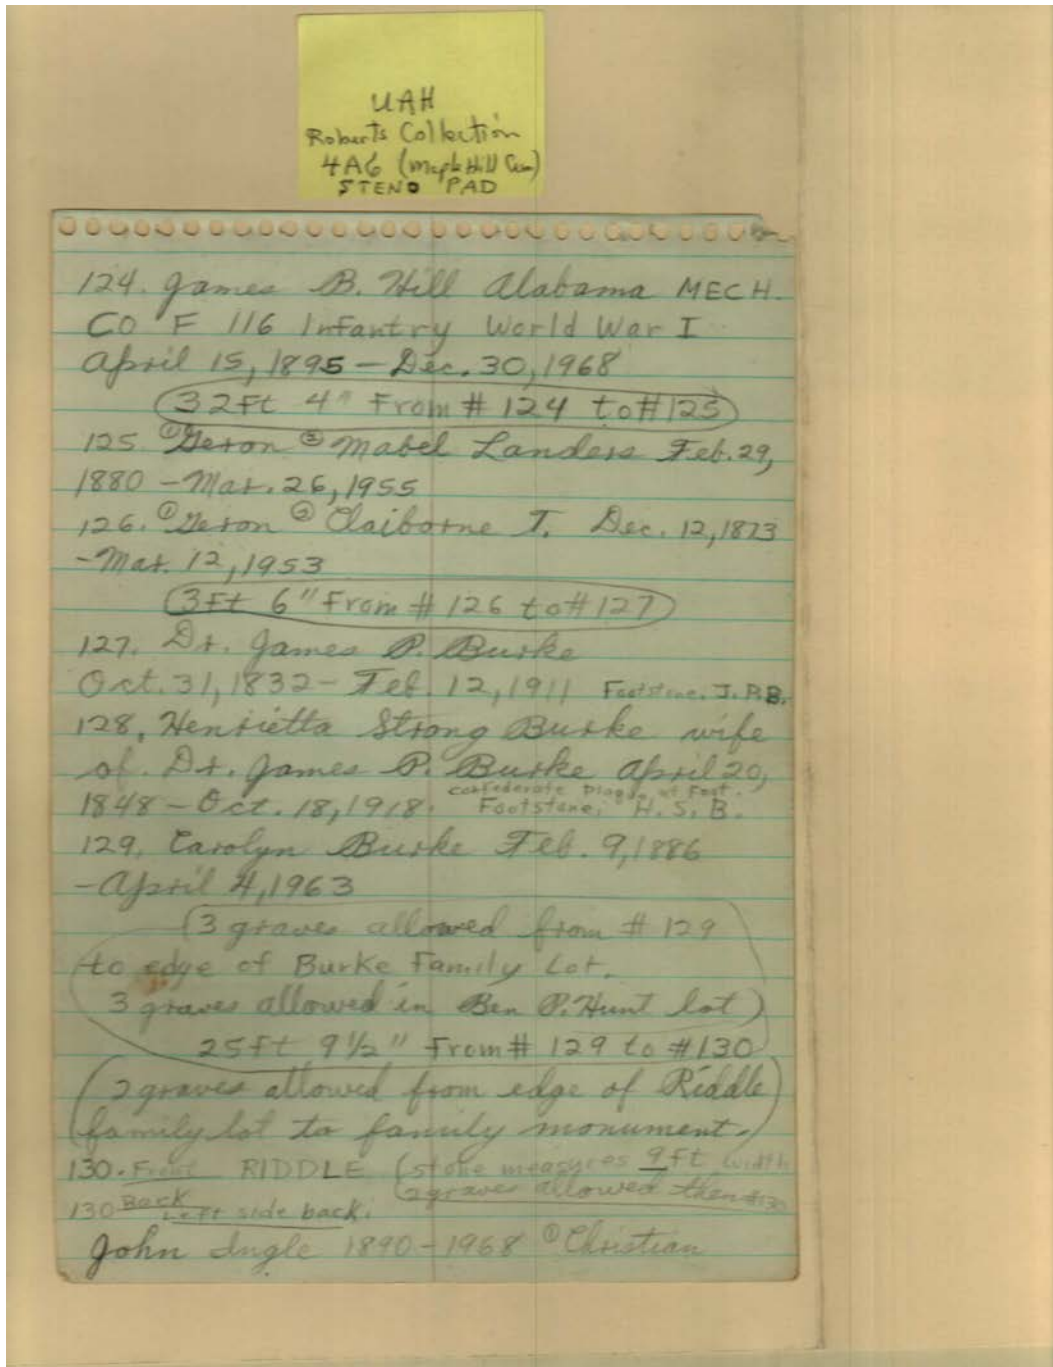 UAH
Roberts Collection
4A6 (Maple Hill Cem)
STENO PAD
124. James B. Hill Alabama MECH.
CO F 116 Infantry World War I
April 15, 1895 – Dec. 30, 1968
32Ft 4" From # 124 to # 125
125. ① Geron ② Mabel Landers Feb. 29,
1880 – Mar. 26, 1955
126. ① Geron ② Claiborne T. Dec. 12, 1873
– Mar. 12, 1953
3Ft 6" From # 126 to # 127
127. Dr. James P. Burke
Oct. 31, 1832 – Feb. 12, 1911 Footstone. J. P. B.
128. Henrietta Strong Burke wife
of Dr. James P. Burke April 20,
confederate plaque at foot.
1848 – Oct. 18, 1918. Footstone: H. S. B.
129. Carolyn Burke Feb. 9, 1886
– April 4, 1963
(3 graves allowed from # 129
to edge of Burke Family Lot.
3 graves allowed in Ben P. Hunt lot)
25Ft 9½" From # 129 to # 130
(2 graves allowed from edge of Riddle
family lot to family monument.)
130. Front RIDDLE (stone measures 9 ft width
2 graves allowed then #130
130 Back Left side back.
John Ingle 1890–1968 ① Christian